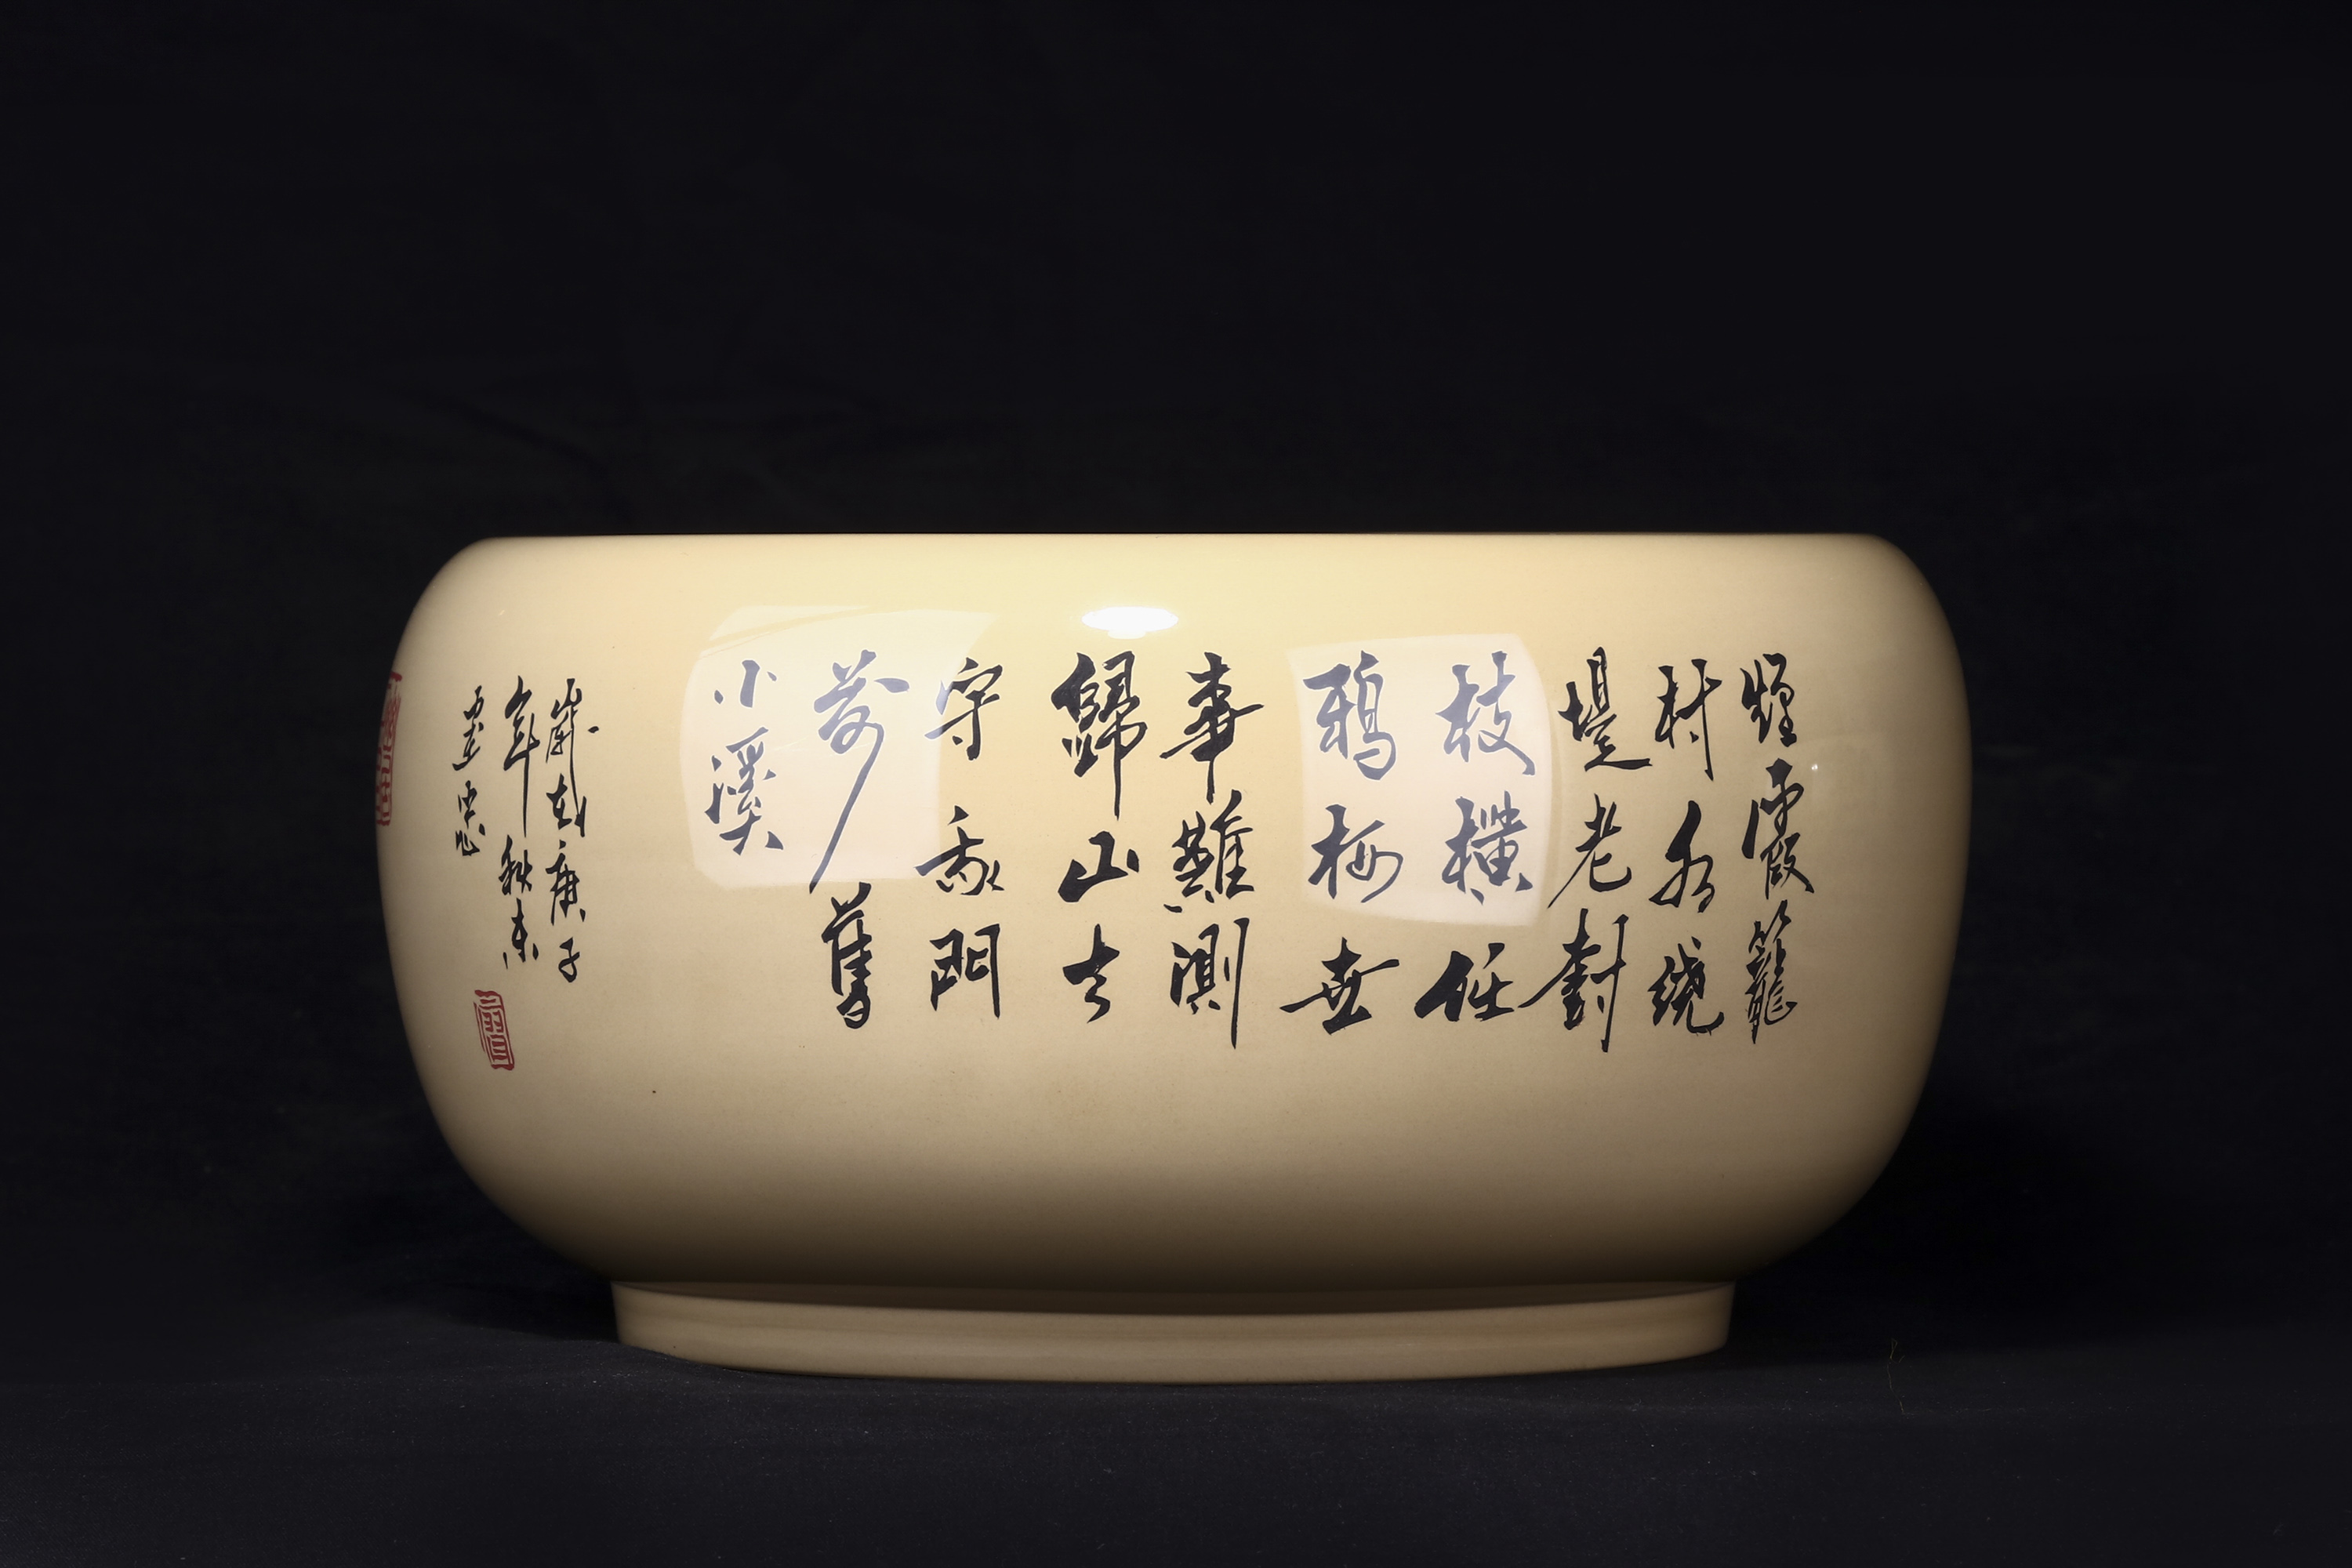 煙霞籠
村水繞
堤老封
枝橫任
鴉梅世
事難測
歸山去
守我門
前舊
小溪
歲在庚子
年秋末
忠